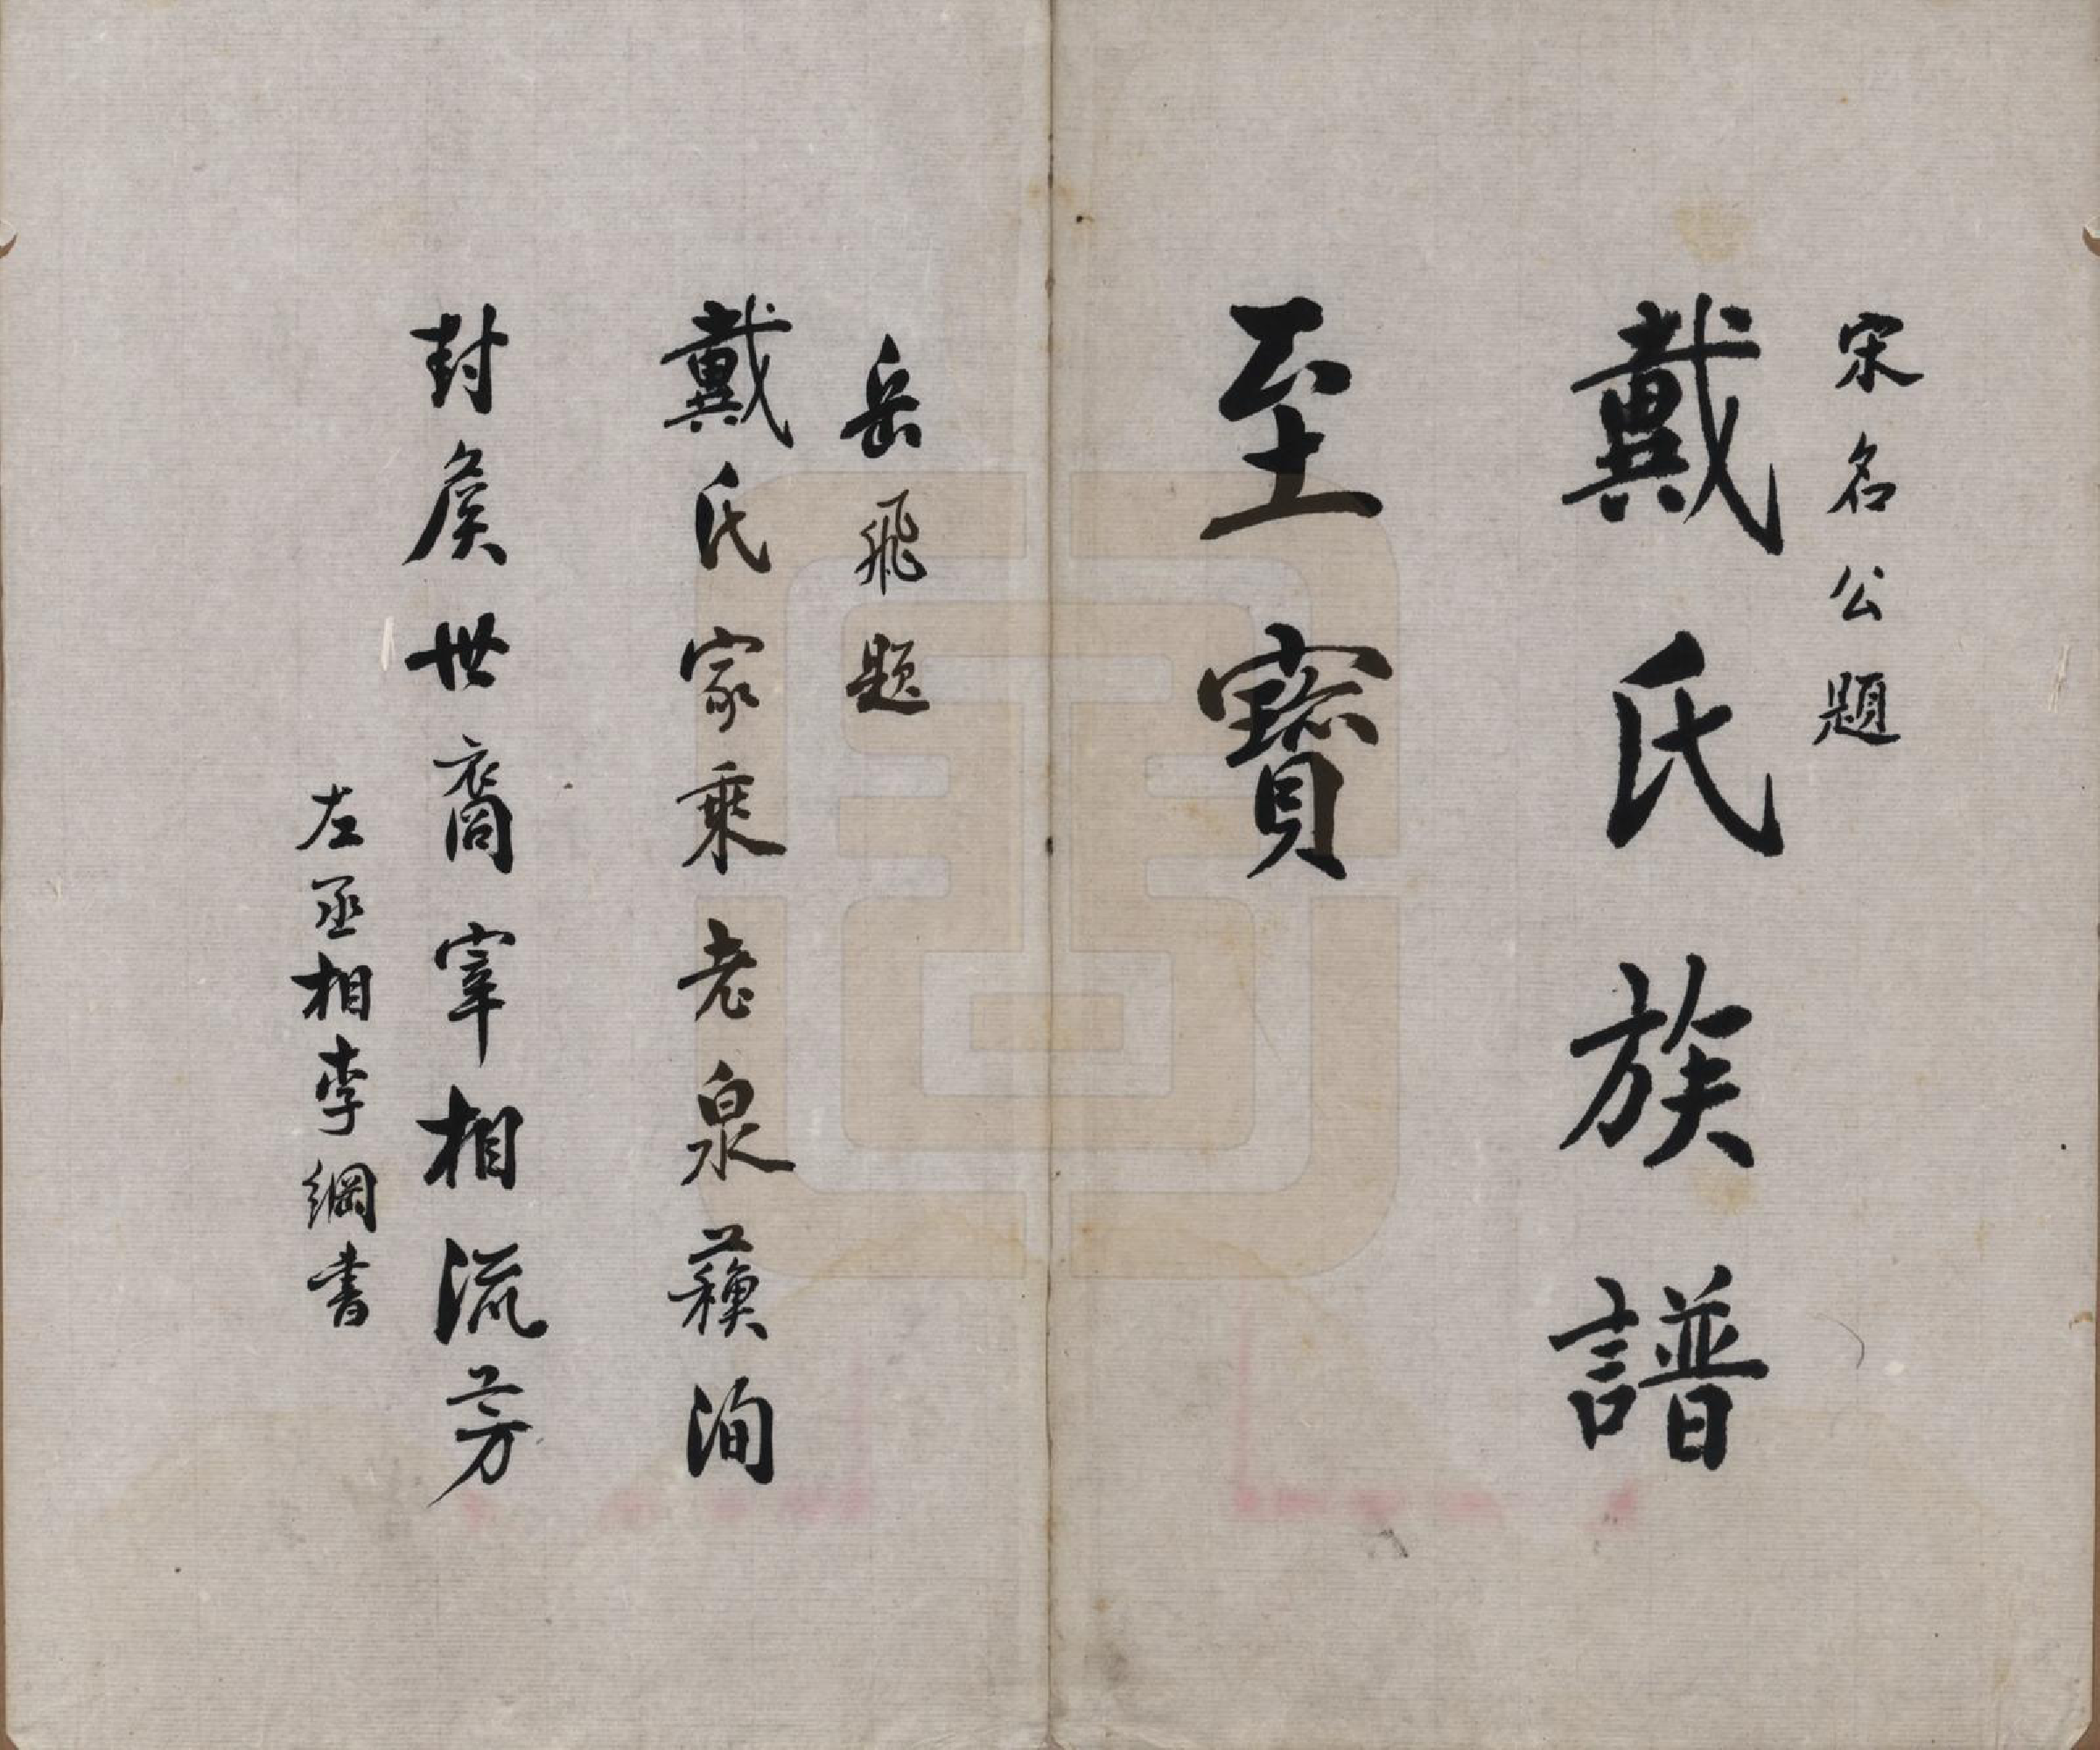 宋名公題
戴氏族譜
至寶
岳飛題
戴氏家乘老泉蘓洵
封矦世裔宰相流芳
左丞相李綱書